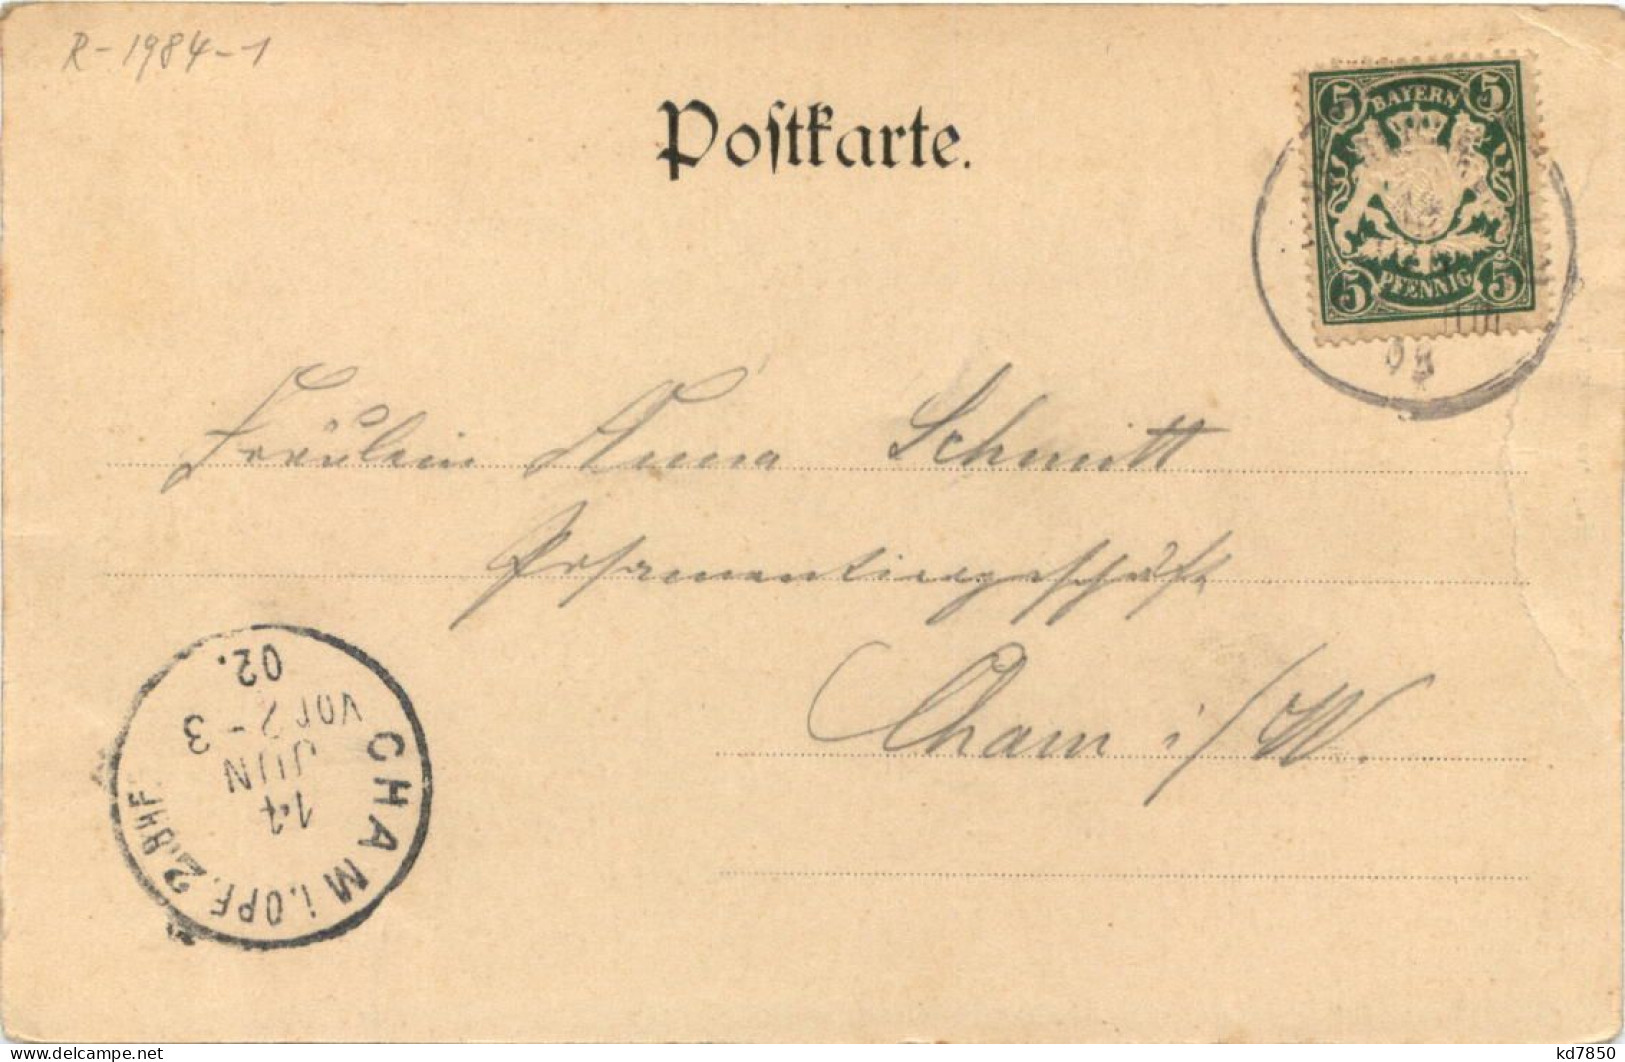 R-1984-1
Postkarte.
5 BAYERN 5
5 PFENNIG 5
02
Fräulein Anna Schmitt
Posamentiergeschäft
Cham i/W.
CHAM i. OPF. 2. BHF.
JUN
VOR 2-3
02.
delcampe.net
kd7850